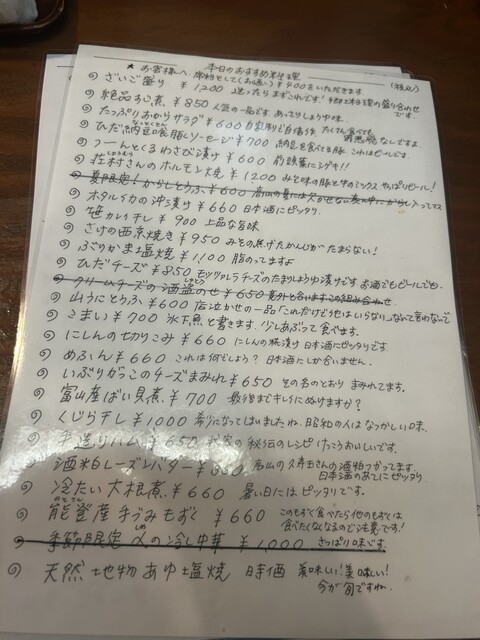 本日のおすすめ料理
★お客様へ 席料としてお一人¥400をいただきます (税込)
ざいご盛り ¥1200 迷ったらまずこれです! 郷土料理の盛り合わせです。
絶品すじ煮 ¥850 人気の一品です。あっさりしょう油味。
たっぷりおからサラダ ¥600 自家製で自信作 たくさん食べても罪悪感なしです。
ひだ納豆喰豚ソーセージ ¥700 納豆を食べる豚 これはビールです。
つーんとくるわさび漬け ¥600 前頭葉にシゲキ!!
荘村さんのホルモン焼 ¥1200 みそ味の豚と牛のミックス やっぱりビール!
夏限定!からしとうふ ¥600 高山の夏には欠かせない 中にからし入ってマス
ホタルイカの沖漬け ¥660 日本酒にピッタリ。
笹カレイ干し ¥900 上品な旨味
さけの西京焼き ¥950 みその焦げたかんじがたまらない!
ぶりかま塩焼 ¥1100 脂のってますよ
ひだチーズ ¥850 モッツァレラチーズのたまりしょうゆ漬けです お酒でもビールでも。
クリームチーズの酒盗のせ ¥650 意外と合いますこの組み合わせ
山うにとうふ ¥600 店泣かせの一品「これだけで他はいらない」なんて言わないで
こまい ¥700 氷下魚と書きます。少しあぶって食べます。
にしんの切りこみ ¥660 にしんの糀漬け 日本酒にピッタリです。
めふん ¥660 これは何でしょう? 日本酒にしか合いません。
いぶりがっこのチーズまみれ ¥650 その名のとおり まみれてます。
富山産ばい貝煮 ¥700 最後までキレイにぬけますか?
くじら干し ¥1000 希少になってしまいましたね、昭和の人はなつかしい味。
手造りハム ¥650 秘伝のレシピ けっこうおいしいです。
酒粕レーズンバター 高山の 酒粕つかってます。日本酒のあてにピッタリ
冷たい大根煮 ¥660 暑い日にはピッタリです。
能登産 手づみもずく ¥660 このもずく食べたら他のもずくは食べたくなくなるのでご注意です!
季節限定 〆の冷し中華 ¥1,000 さっぱり味です。
天然 地物 あゆ塩焼 時価 美味しい!美味しい!今が旬ですね。